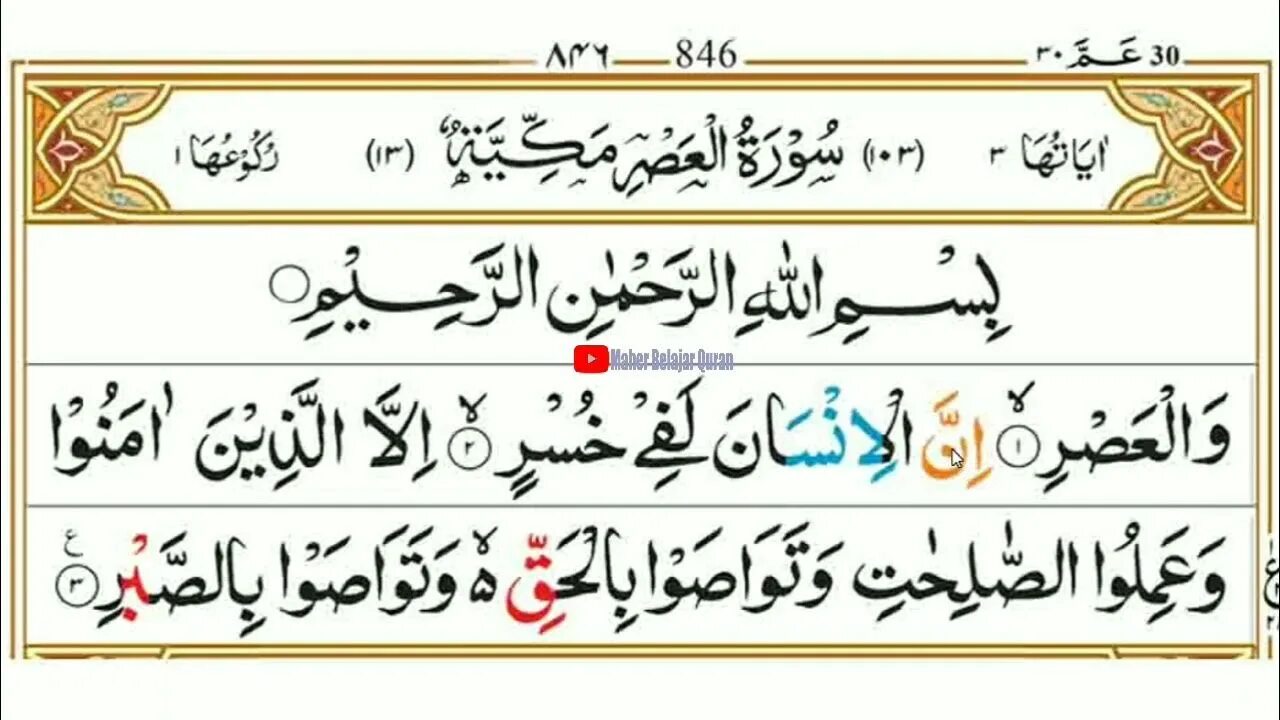 ٨٤٦ 846 عَمَّ ٣٠ 30
اٰيَاتُهَا ٣ (١٠٣) سُوْرَةُ الْعَصْرِ مَكِّيَّةٌ (١٣) رُكُوْعُهَا ١
بِسْمِ اللّٰهِ الرَّحْمٰنِ الرَّحِيْمِ
Maher Belajar Quran
وَالْعَصْرِ ۙ ١ اِنَّ الْاِنْسَانَ لَفِيْ خُسْرٍ ۙ ٢ اِلَّا الَّذِيْنَ اٰمَنُوْا
وَعَمِلُوا الصّٰلِحٰتِ وَتَوَاصَوْا بِالْحَقِّ ۙ ٥ وَتَوَاصَوْا بِالصَّبْرِ ٣ ع